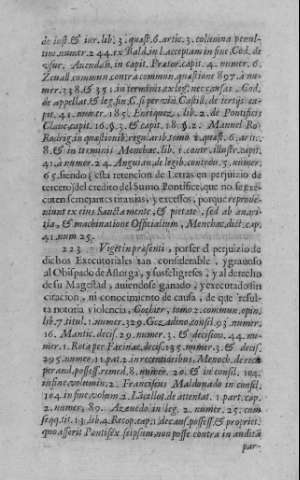 de iust. & iur. lib. 3. quæst. 6. artic. 3. columna penul-
tim. numer. 244. Bald. in l. acceptam in fine, Cod. de
vsur. Auendañ. in capit. Prætor. capit. 4. numer. 6.
Zeuall. commun. contra commun. quæstione 897. à nu-
mer. 338. & 351. in terminis ex leg. nec causas, Cod.
de appellat. & leg. fin. C. si per vim, Castill. de tertijs, ca-
put. 41. numer. 185. Enriquez, lib. 2. de Pontificis
Claue, capit. 16. §. 3. & capit. 18. §. 2. Manuel Ro-
drig. in quæstionib. regularib. tomo 2. quæst. 6. artic.
8. & in terminis Menchac. lib. 1. contr. illustr. capit.
41. à numer. 24. Anguian. de legib. controu. 5. numer.
65. siendo esta retencion de Letras en perjuizio de
tercero del credito del Sumo Pontifice, que no se
cuten semejantes tiranias, y excessos, porque reprobe-
niunt ex eius Sancta mente, & pietate, sed ab auari-
tia, & machinatione Officialium, Menchac. dict. cap.
41. num. 25.
223. Viget in præsenti, por ser el perjuizio de
dichos Executoriales tan considerable, y grauoso
al Obispado de Astorga, y sus feligreses, y al derecho
de su Magestad, auiendose ganado, y executado sin
citacion, ni conocimiento de causa, de que resul-
ta notoria violencia, Cochier, tomo 2. commun. opin.
lib. 7. titul. 1. numer. 329. Gozadino, consil. 93. numer.
16. Mantic. decis. 29. numer. 3. & decision. 44. nu-
mer. 1. Rota per Farinac. decis. 135. numer. 3. & decis.
295. numer. 11. par. 2. in recentioribus, Menoch. de recu-
perand. possess. remed. 8. numer. 20. & in consil. 104.
in fine volumin. 2. Franciscus Maldonado in consil.
104. in fine, volum. 2. Lãcellot. de attentat. 1. part. cap.
2. numer. 89. Azeuedo in leg. 2. numer. 25. cum
seqq. tit. 13. lib. 4. Recop. cap. 1. de caus. possess. & propriet.
quo asserit Pontifex seipsum, non posse contra inauditã
par-